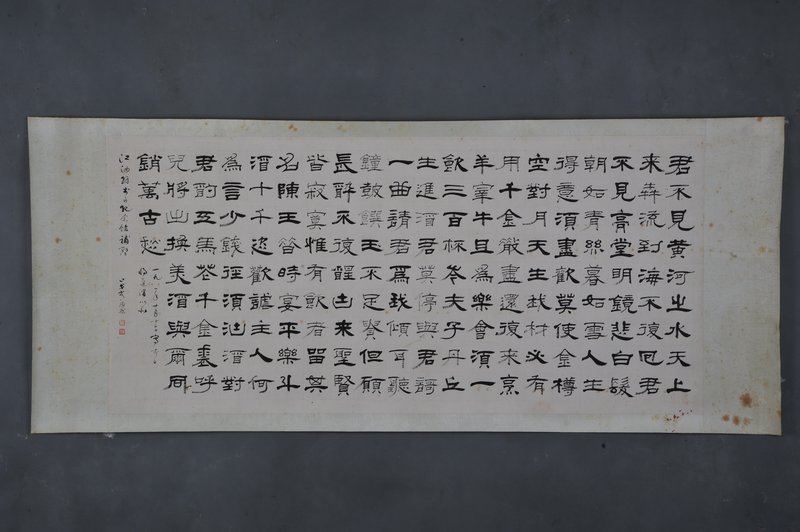 君不見黃河之水天上
來奔流到海不復回君
不見高堂明鏡悲白髮
朝如青絲暮如雪人生
得意須盡歡莫使金樽
空對月天生我材必有
用千金散盡還復來烹
羊宰牛且為樂會須一
飲三百杯岑夫子丹丘
生進酒君莫停與君歌
一曲請君為我傾耳聽
鐘鼓饌玉不足貴但願
長醉不復醒古來聖賢
皆寂寞惟有飲者留其
名陳王昔時宴平樂斗
酒十千恣歡謔主人何
為言少錢徑須沽酒對
君酌五馬花千金裘呼
兒將出換美酒與爾同
銷萬古愁